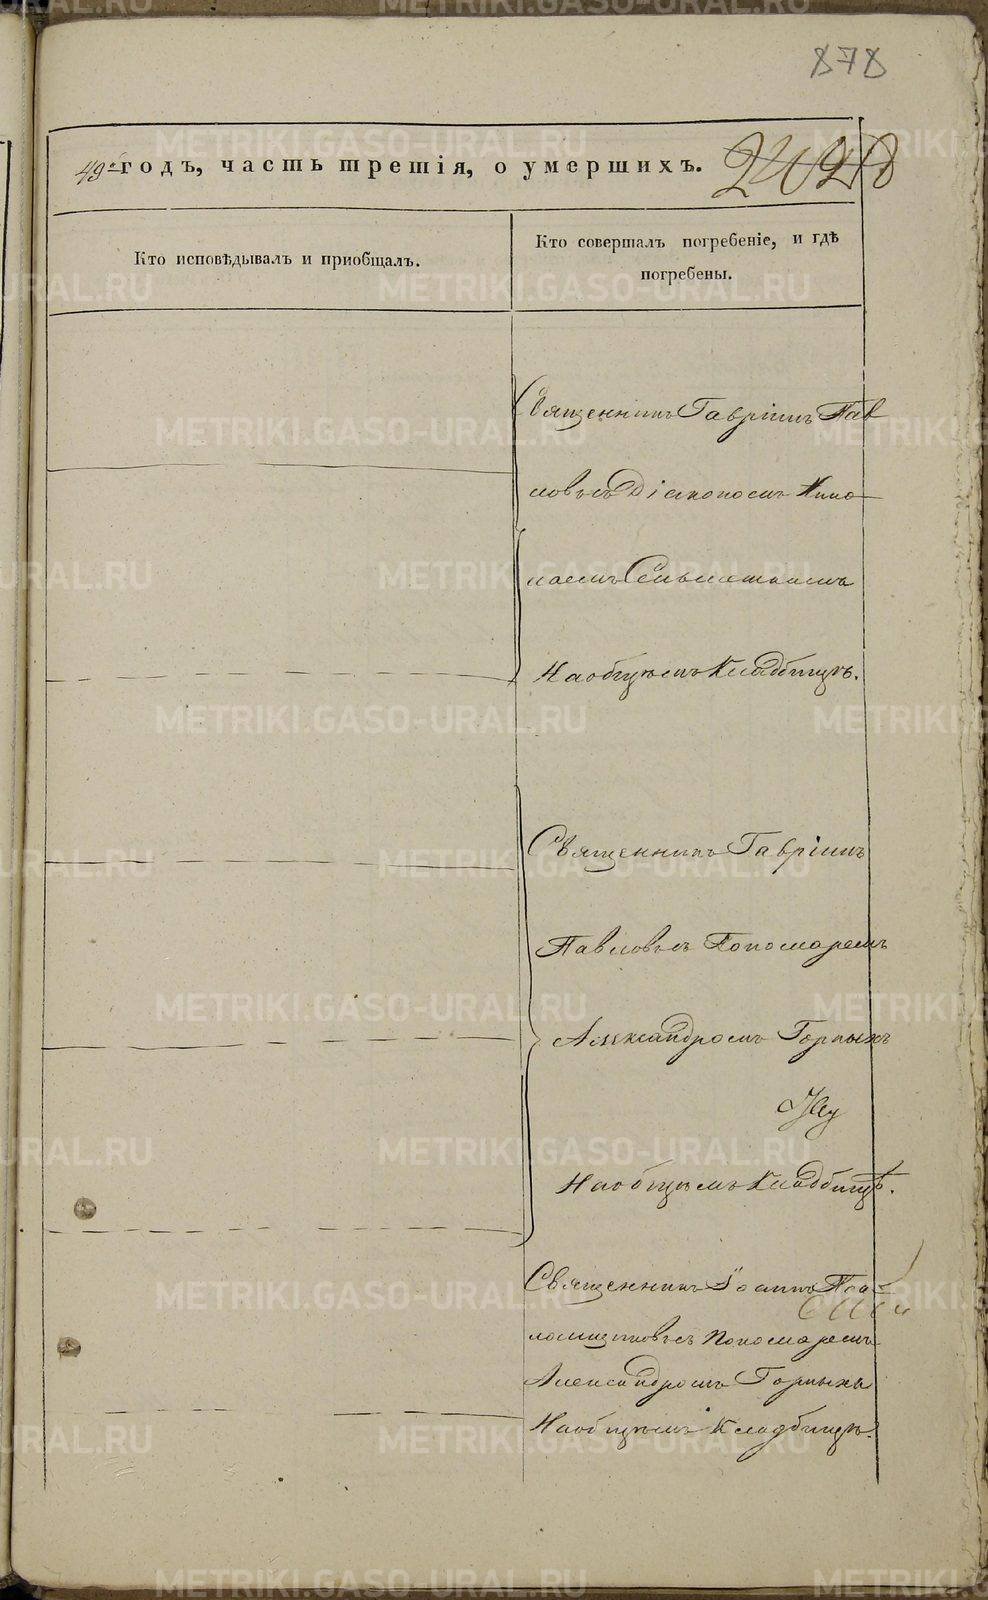 878
49го годъ, часть третія, о умершихъ.
Кто исповѣдывалъ и пріобщалъ.
Кто совершалъ погребеніе, и гдѣ
погребены.
Священникъ Гавріилъ Пав
ловъ съ Діакономъ Нико
лаемъ
На общемъ Кладбищѣ.
Священникъ Гавріилъ
Павловъ съ Пономаремъ
Александромъ Горныхъ
На общемъ Кладбищѣ.
Священникъ Іоаннъ
съ Пономаремъ
Александромъ Горныхъ
На общемъ Кладбищѣ.
METRIKI.GASO-URAL.RU